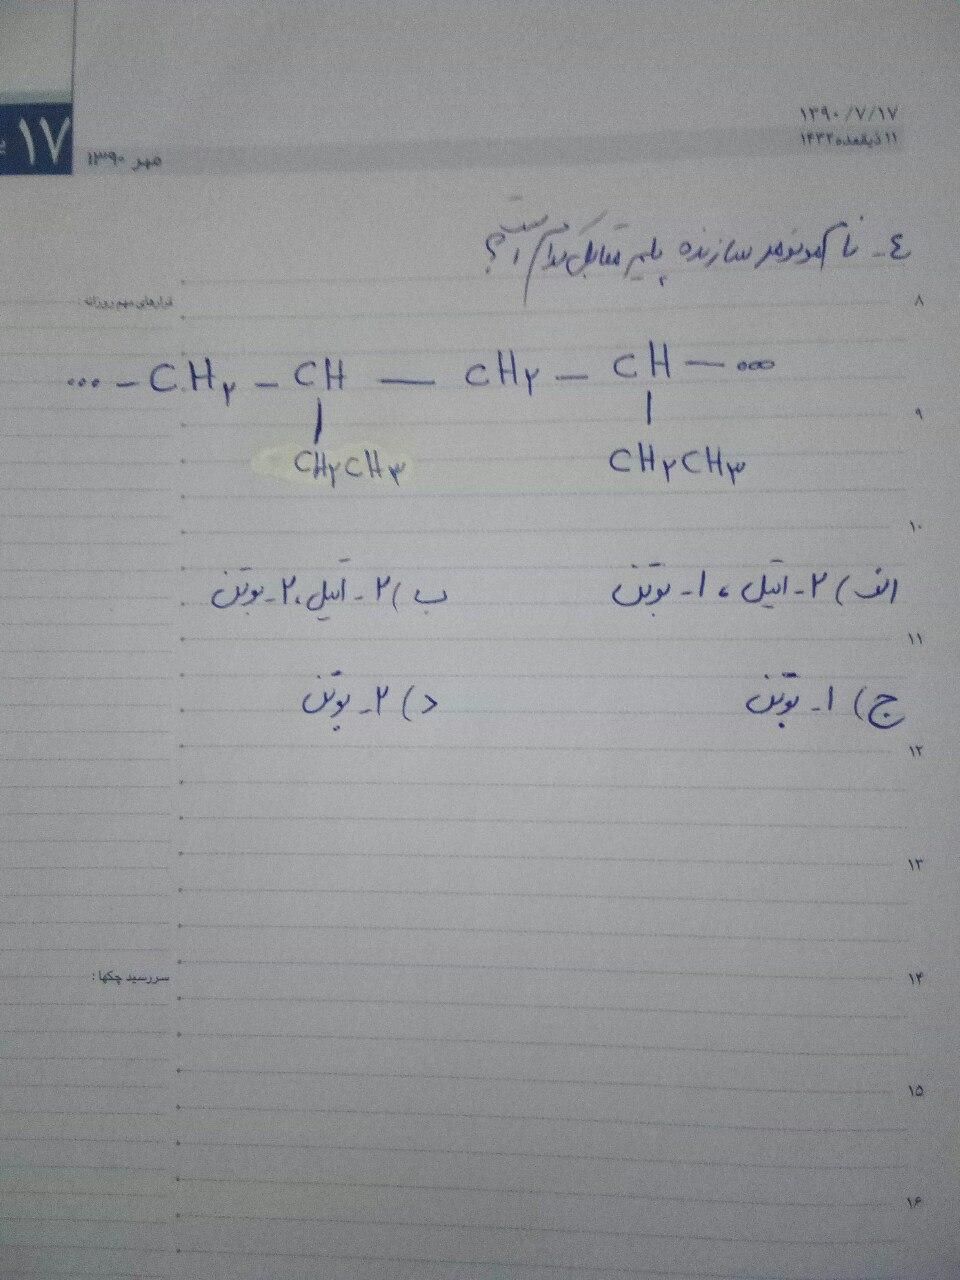 ۱۳۹۰/۷/۱۷
۱۱ ذیقعده ۱۴۳۲
مهر ۱۳۹۰
۱۷
٤- نام مونومر سازنده پلیمر مقابل کدام است؟
قرارهای مهم روزانه:
۸
... - CH۲ - CH — CH۲ - CH - ...
۹
CH۲CH۳ CH۲CH۳
۱۰
الف) ۲- اتیل، ۱- بوتن ب) ۲- اتیل، ۲- بوتن
۱۱
ج) ۱- بوتن د) ۲- بوتن
۱۲
۱۳
سررسید چکها:
۱۴
۱۵
۱۶